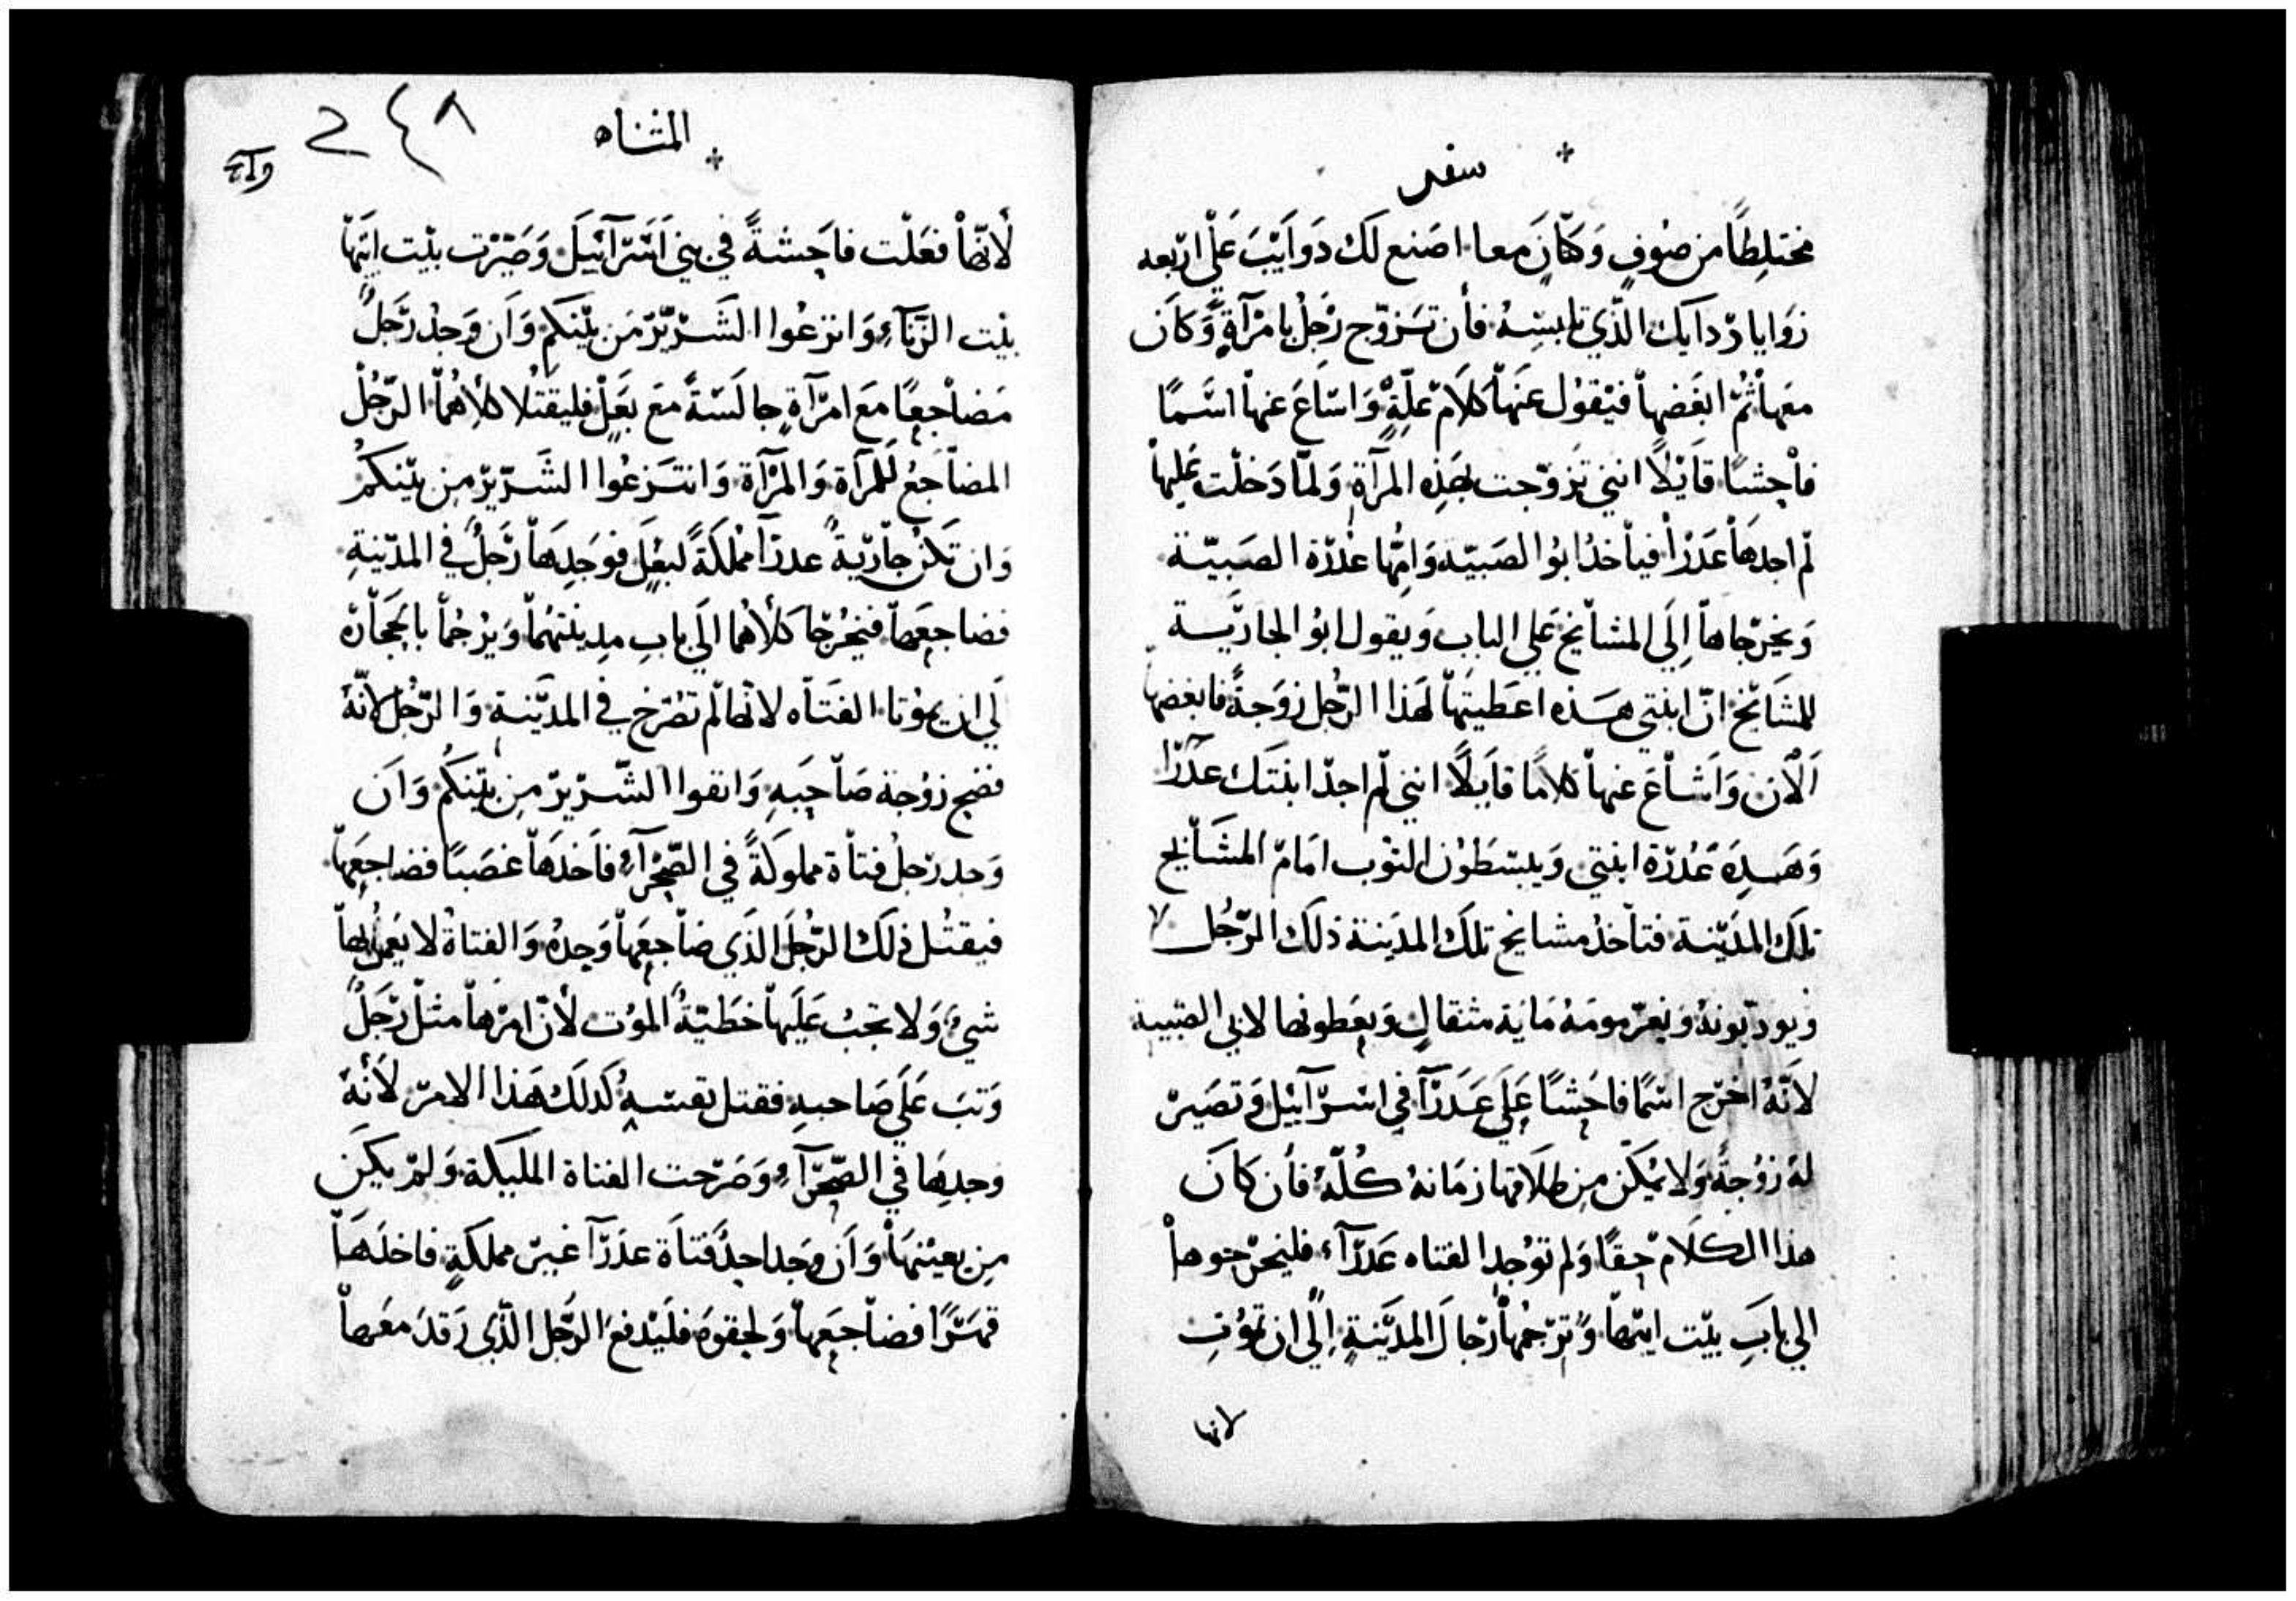 سفر
مختلطًا من صوفٍ وَكتّانٍ معا. اصنع لك دَوَايَبَ عَلَى اربعه
زوايا ردايك الذي تلبسه. فأن تزوّج رَجلُ بامرآةٍ وَكان
معَها ثُمّ ابغَضها فيقول عَنها كلامَ عِلّةٍ وَاشاع عنها اسمًا
فاحشًا قايلًا انني تزوّجت بهَذِه المرآةِ وَلما دَخلت عَليها
لم اجدهَا عَذرآ فيأخذ ابوُ الصَبيّة وَامّها عُذرة الصَبيّة
وَيخرجاها إلَى المشايخ عَلي الباب وَيقول ابوُ الجاريَـة
للمشايخ انّ ابنتي هـذه اعطيتهَا لهَذا الرّجُل زوَجةً فابغضها
اَلآن وَاشاعَ عنها كلامًا قايلًا انني لم اجد ابنتك عَذرآ
وَهَـذِه عُذرة ابنتي وَيبسَطوُن الثوب امَام المشايخ
تلك المدَينة. فتأخذ مشايخ تلك المدَينة ذلك الرّجُل
ويودبونهُ وَيغرّمومَهُ مَاية مثقالٍ وَيعَطونها لابي الصّبيه
لانّهُ اخرج اسمًا فاحَشًا عَلَي عَذرآ في اسرآييل وَتصَير
لهُ زوُجةً وَلا يمُكّن من طلاقها زمَانهُ كـُلّهُ فأن كانَ
هذا الكلام حِقًا وَلم توُجد الفتاه عَذرآء فليخرجوها
الي باب بيت ابيها وَترجمُها رجال المدَينةِ إلَي ان تموُت
لانها
المثناه
٢٤٨
لأنّها فعَلت فاحِشةً في بني اَسرآئيلَ وَصَيّرت بيت ابيها
بيت الزّناء وَانزعُوا الشَـرّير مَن بَينكم وَاَن وَجدُ رَجلٌ
مَضاجعًا مَعَ امرآةٍ جالسَةً مَعَ بَعَلٍ فليقتلا كلاهُمَا الرّجُل
المضاجَعُ للمرآة وَالمرآة وَانتـزعُوا الشَـرّير من بَينكمُ
وَان تكن جاريةً عدرآ مملكَةً لبعَلٍ فوَجدهَا رَجلٌ في المدينةِ
فضاجعَها فيخرُجا كلاهُما الَي باب مِدينتهُما وَيرجُمَا بالحَجارة
لَي ان يموُتا. الفَتاه لانها لم تصَرخ في المدَينـة وَالرّجُل لانّهُ
فضح زوُجة صَاحَبهِ وَانفوا الشّـرّير مِن بينكُم وَاَن
وَحد رَجلُ فتاة مملوكةً في الصّحرآءِ فاَخدَها غصَبًا فضاجعَها
فيقتُل ذلَك الرّجُل الذَي ضاجعَها وَحدهُ وَالفتاةُ لا يَعمَلُ بها
شيءُ وَلا تجبُ عَلَيها خطَيّةُ الموُت لأنّ امرهَا مثل رَجلٍ
وَثبَ عَلَي صَاحبهِ فقتل نفسَـهُ كَدلَك هَذا الامر لأنّهُ
وجدِها في الصّحرآءِ وَصَرخت الفتاة المليكة وَلمْ يكَن
مِن يعينها وَاَن وَجد احدٌ فتاَة عذَرآ غيـر مملكَةٍ فاخدهَا
قهرًا فضاجعَها وَلحقوهَ فليَدفع الرّجُل الّذَي رَقدَ معَها